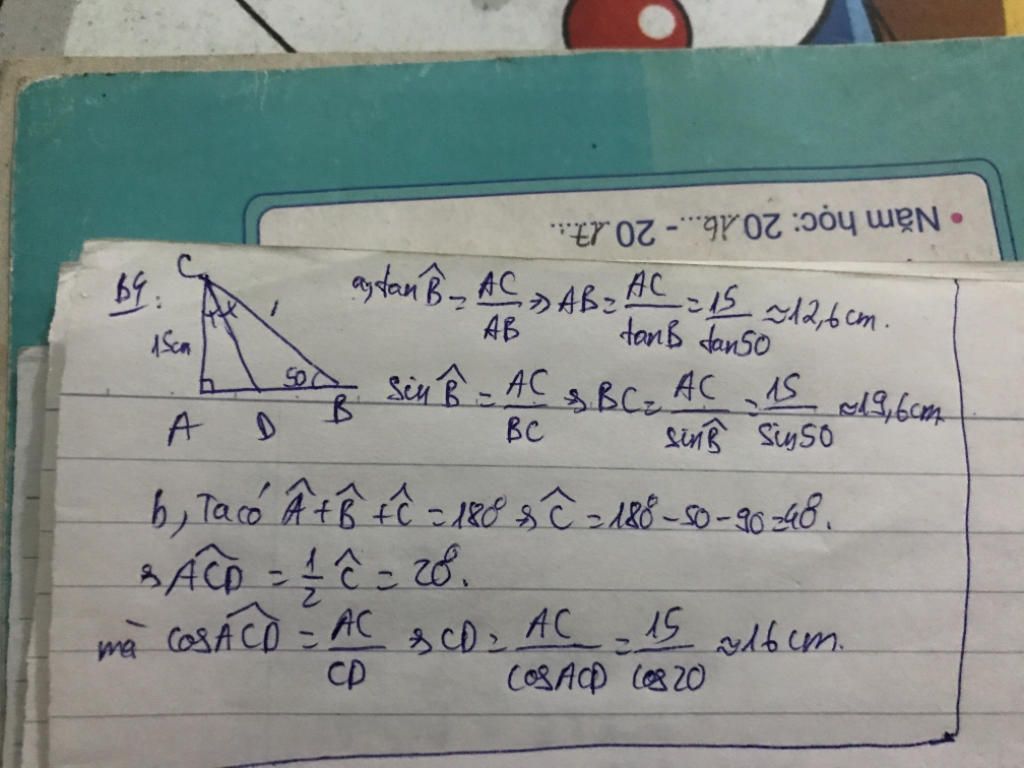 • Năm học: 20 16... - 20 17...
B4:
C
15cm
50
A D B
a, tan B̂ = AC/AB => AB = AC/tanB = 15/tan50 ≈ 12,6 cm.
sin B̂ = AC/BC => BC = AC/sinB̂ = 15/sin50 ≈ 19,6 cm
b, Ta có Â + B̂ + Ĉ = 180° => Ĉ = 180° - 50 - 90 = 40°.
=> ACD = 1/2 Ĉ = 20°.
mà cos ACD = AC/CD => CD = AC/cosACD = 15/cos20 ≈ 16 cm.